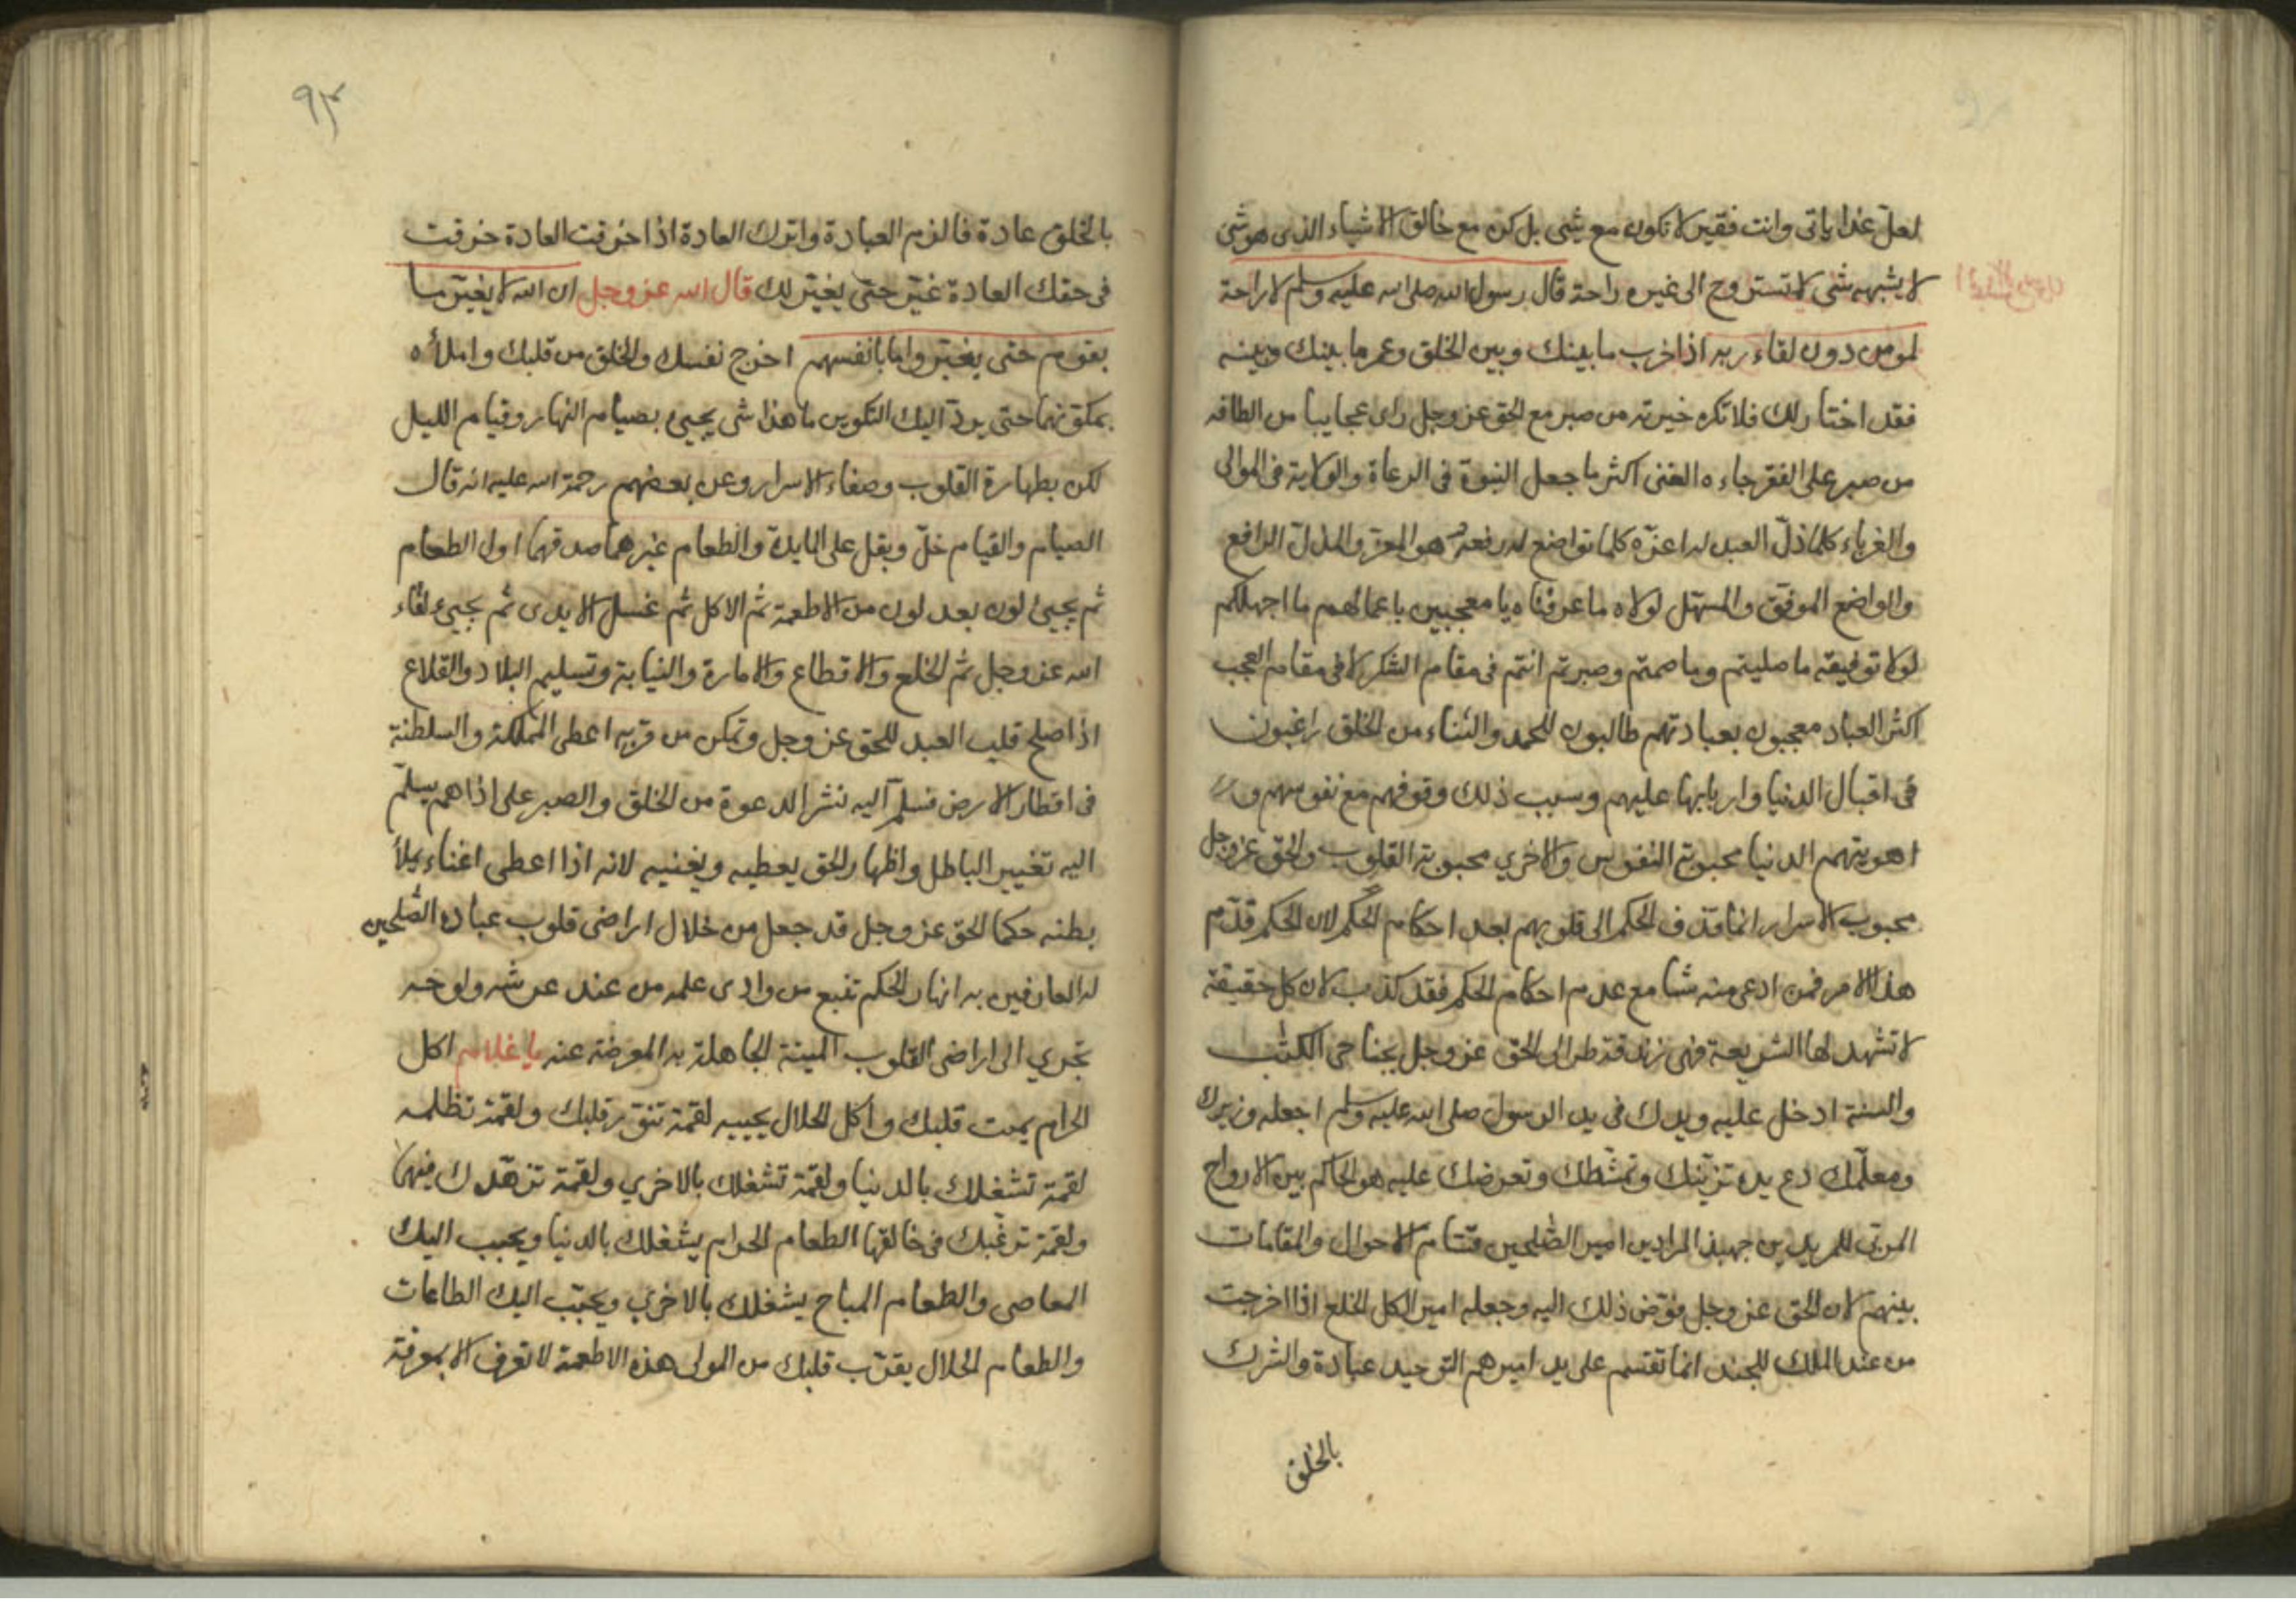 لعل غدا ياتى وانت فقير لا تكون مع شئ بل كن مع خالق الاشياء الذى هو شئ
لا يشبهه شئ لا تستروح الى غيره راحة قال رسول الله صلى الله عليه وسلم لا راحة
لمومن دون لقاء ربه اذا خرب ما بينك وبين الخلق وعمر ما بينك وبينه
فقد اختارلك فلا تكره خيرته من صبر مع الحق عز وجل راى عجايبا من الطافه
من صبر على الفقر جاءه الغنى اكثر ما جعل النبوة فى الرعاة والولاية فى الموالى
والغرباء كلما ذلّ العبد له اعزّه كلما تواضع له رفعه هو المعز والمذل الرافع
والواضع الموفق والمسهل لولاه ما عرفناه يا معجبين باعمالهم ما اجهلكم
لولا توفيقه ما صليتم وما صمتم وصبرتم انتم فى مقام الشكر لا فى مقام العجب
اكثر العباد معجبون بعبادتهم طالبون للحمد والثناء من الخلق راغبون
فى اقبال الدنيا واربابها عليهم وسبب ذلك وقوفهم مع نفوسهم و
اهويتهم الدنيا محبوبة النفوس والاخري محبوبة القلوب والحق عز وجل
محبوب الاسرار انما قذف الحكم الى قلوبهم بعد احكام الحكم لان الحكم قدّم
هذا الامر فمن ادعى منه شئا مع عدم احكام الحكم فقد كذب لان كل حقيقة
لا تشهد لها الشريعة فهى زندقة طر الى الحق عز وجل بجناحى الكتب
والسنة ادخل عليه ويدك فى يد الرسول صلى الله عليه وسلم اجعله وزيرك
ومعلّمك دع يده تزيّنك وتمشّطك وتعرضك عليه هو الحاكم بين الارواح
المربّى للمريدين جهبذ المرادين امير الصّلحين قسّام الاحوال والمقامات
بينهم لان الحق عز وجل فوّض ذلك اليه وجعله امير الكل الخلع اذا اخرجت
من عند الملك للجند انما تقسم على يد اميرهم التوحيد عبادة والشرك
بالخلق
٩٣
بالخلق عادة فالزم العبادة واترك العادة اذا خرقت العادة خرقت
فى حقك العادة غيّر حتى يغيّر لك قال الله عز وجل ان الله لا يغيّر ما
بقوم حتى يغيّروا ما بانفسهم اخرج نفسك والخلق من قلبك واملأه
بمكوّنهما حتى يردّ اليك التكوين ما هذا شى يجيئ بصيام النهار وقيام الليل
لكن بطهارة القلوب وصفاء الاسرار وعن بعضهم رحمة الله عليه انه قال
الصيام والقيام خلّ وبقل على المايدة والطعام غيرهما صدق هما اول الطعام
ثم يجيئ لون بعد لون من الاطعمة ثم الاكل ثم غسل الايدى ثم يجيئ لقاء
الله عز وجل ثم الخلع والاقطاع والامارة والنيابة وتسليم البلاد والقلاع
اذا صلح قلب العبد للحق عز وجل وتمكن من قربه اعطى المملكة والسلطنة
فى اقطار الارض تسلم اليه نشر الدعوة من الخلق والصبر على اذاهم يسلّم
اليه تغيير الباطل واظهار الحق يعطيه ويغنيه لانه اذا اعطى اغناء يملأ
بطنه حكما الحق عز وجل قد جعل من خلال اراضى قلوب عباده الصّلحين
له العارفين به انهار الحكم تنبع من وادى علمه من عند عرشه ولوحه
تجري الى اراضى القلوب الميتة الجاهلة به المعرضة عنه يا غلام اكل
الحرام يميت قلبك واكل الحلال يحييه لقمة تنوّر قلبك ولقمة تظلمه
لقمة تشغلك بالدنيا ولقمة تشغلك بالاخري ولقمة تزهّدك فيهما
ولقمة ترغّبك فى خالقها الطعام الحرام يشغلك بالدنيا ويحبب اليك
المعاصى والطعام المباح يشغلك بالاخري ويحبّب اليك الطاعات
والطعام الحلال يقرّب قلبك من المولى هذه الاطعمة لا تعرف الا بمعرفة